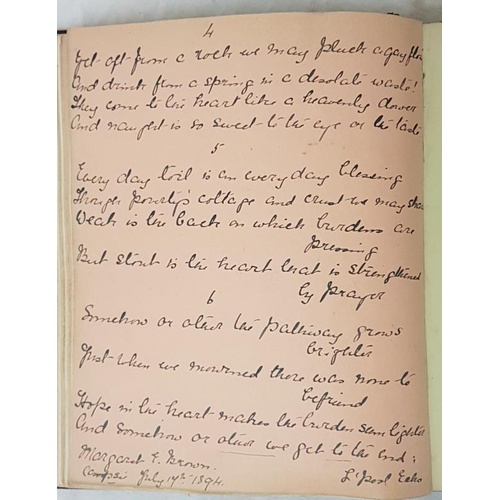 4
Yet oft from a rock we may pluck a gay flow
And drink from a spring in a desolate waste!
They come to the heart like a heavenly dower
And naught is so sweet to the eye or the taste
5
Every day toil is an every day blessing
Though poverty's cottage and crust we may share
Weak is the back on which burdens are
pressing
But stout is the heart that is strengthened
by prayer
6
Somehow or other the pathway grows
brighter
Just when we mourned there was none to
befriend
Hope in the heart makes the burden seem lighter
And somehow or other we get to the end;
Margaret E. Brown.
Campsie July 17th 1894.
L'pool Echo